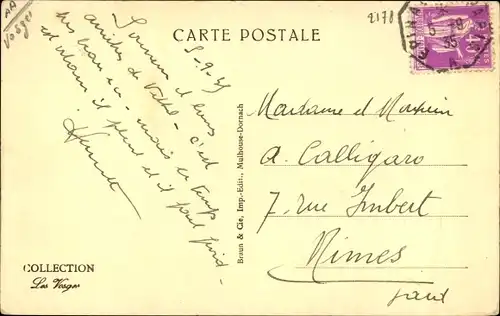 AA
Vosges
2178
CARTE POSTALE
5-9-35
Souvenir et bons
amitiés de Vittel - c'est
très beau ici - mais ce temps
est il pleut et il fait froid -
Madame et Monsieur
A. Calligaro
7, rue Imbert
Nimes
Gard
Braun & Cie, Imp.-Edit., Mulhouse-Dornach
COLLECTION
Les Vosges